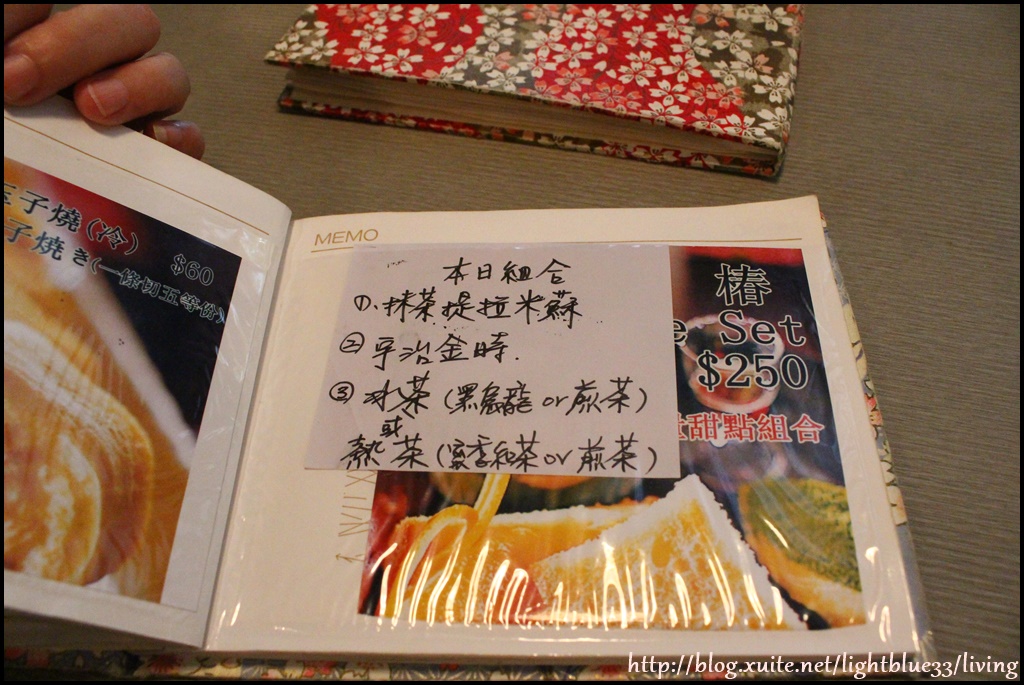 玉子燒(冷)
子燒き(一條切五等份)
$60
MEMO
本日組合
①、抹茶提拉米蘇
②宇治金時.
③冰茶(黑烏龍or煎茶)
或
熱茶(蜜季和茶or煎茶)
椿
e Set
$250
甜點組合
http://blog.xuite.net/lightblue33/living